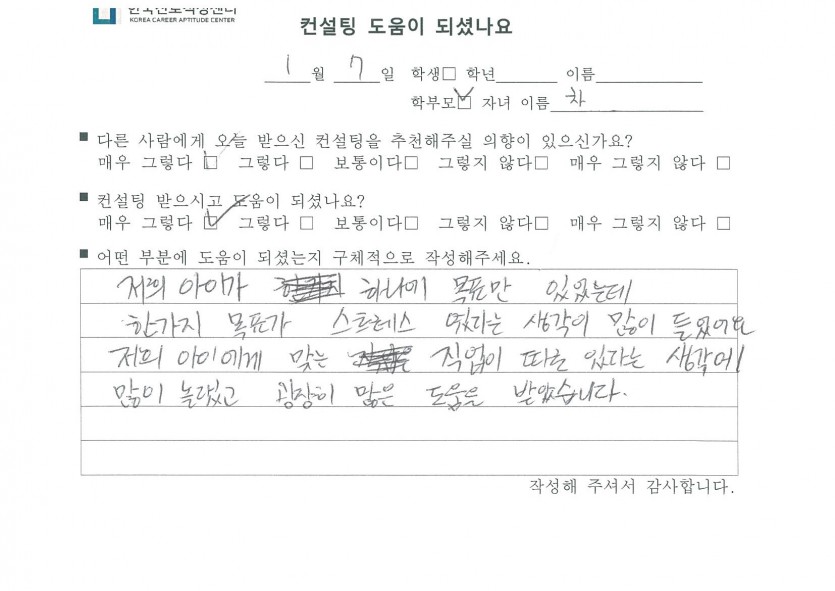 한국진로적성센터
KOREA CAREER APTITUDE CENTER
컨설팅 도움이 되셨나요
1월 7일 학생□ 학년 이름
학부모☑ 자녀 이름 차
■ 다른 사람에게 오늘 받으신 컨설팅을 추천해주실 의향이 있으신가요?
매우 그렇다 ☑ 그렇다 □ 보통이다□ 그렇지 않다□ 매우 그렇지 않다 □
■ 컨설팅 받으시고 도움이 되셨나요?
매우 그렇다 ☑ 그렇다 □ 보통이다□ 그렇지 않다□ 매우 그렇지 않다 □
■ 어떤 부분에 도움이 되셨는지 구체적으로 작성해주세요.
저의 아이가 하나에 목표만 있었는데
한가지 목표가 스트레스 였다는 생각이 많이 들었어요
저의 아이에게 맞는 직업이 따로 있다는 생각에
많이 놀랐고 굉장히 많은 도움을 받았습니다.
작성해 주셔서 감사합니다.